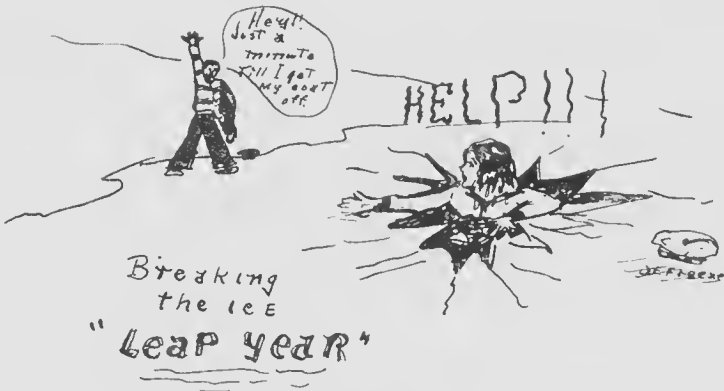 Hey!!
Just a
minute
till I get
my coat
off.
HELP!!!
Breaking
the ice
"Leap Year"